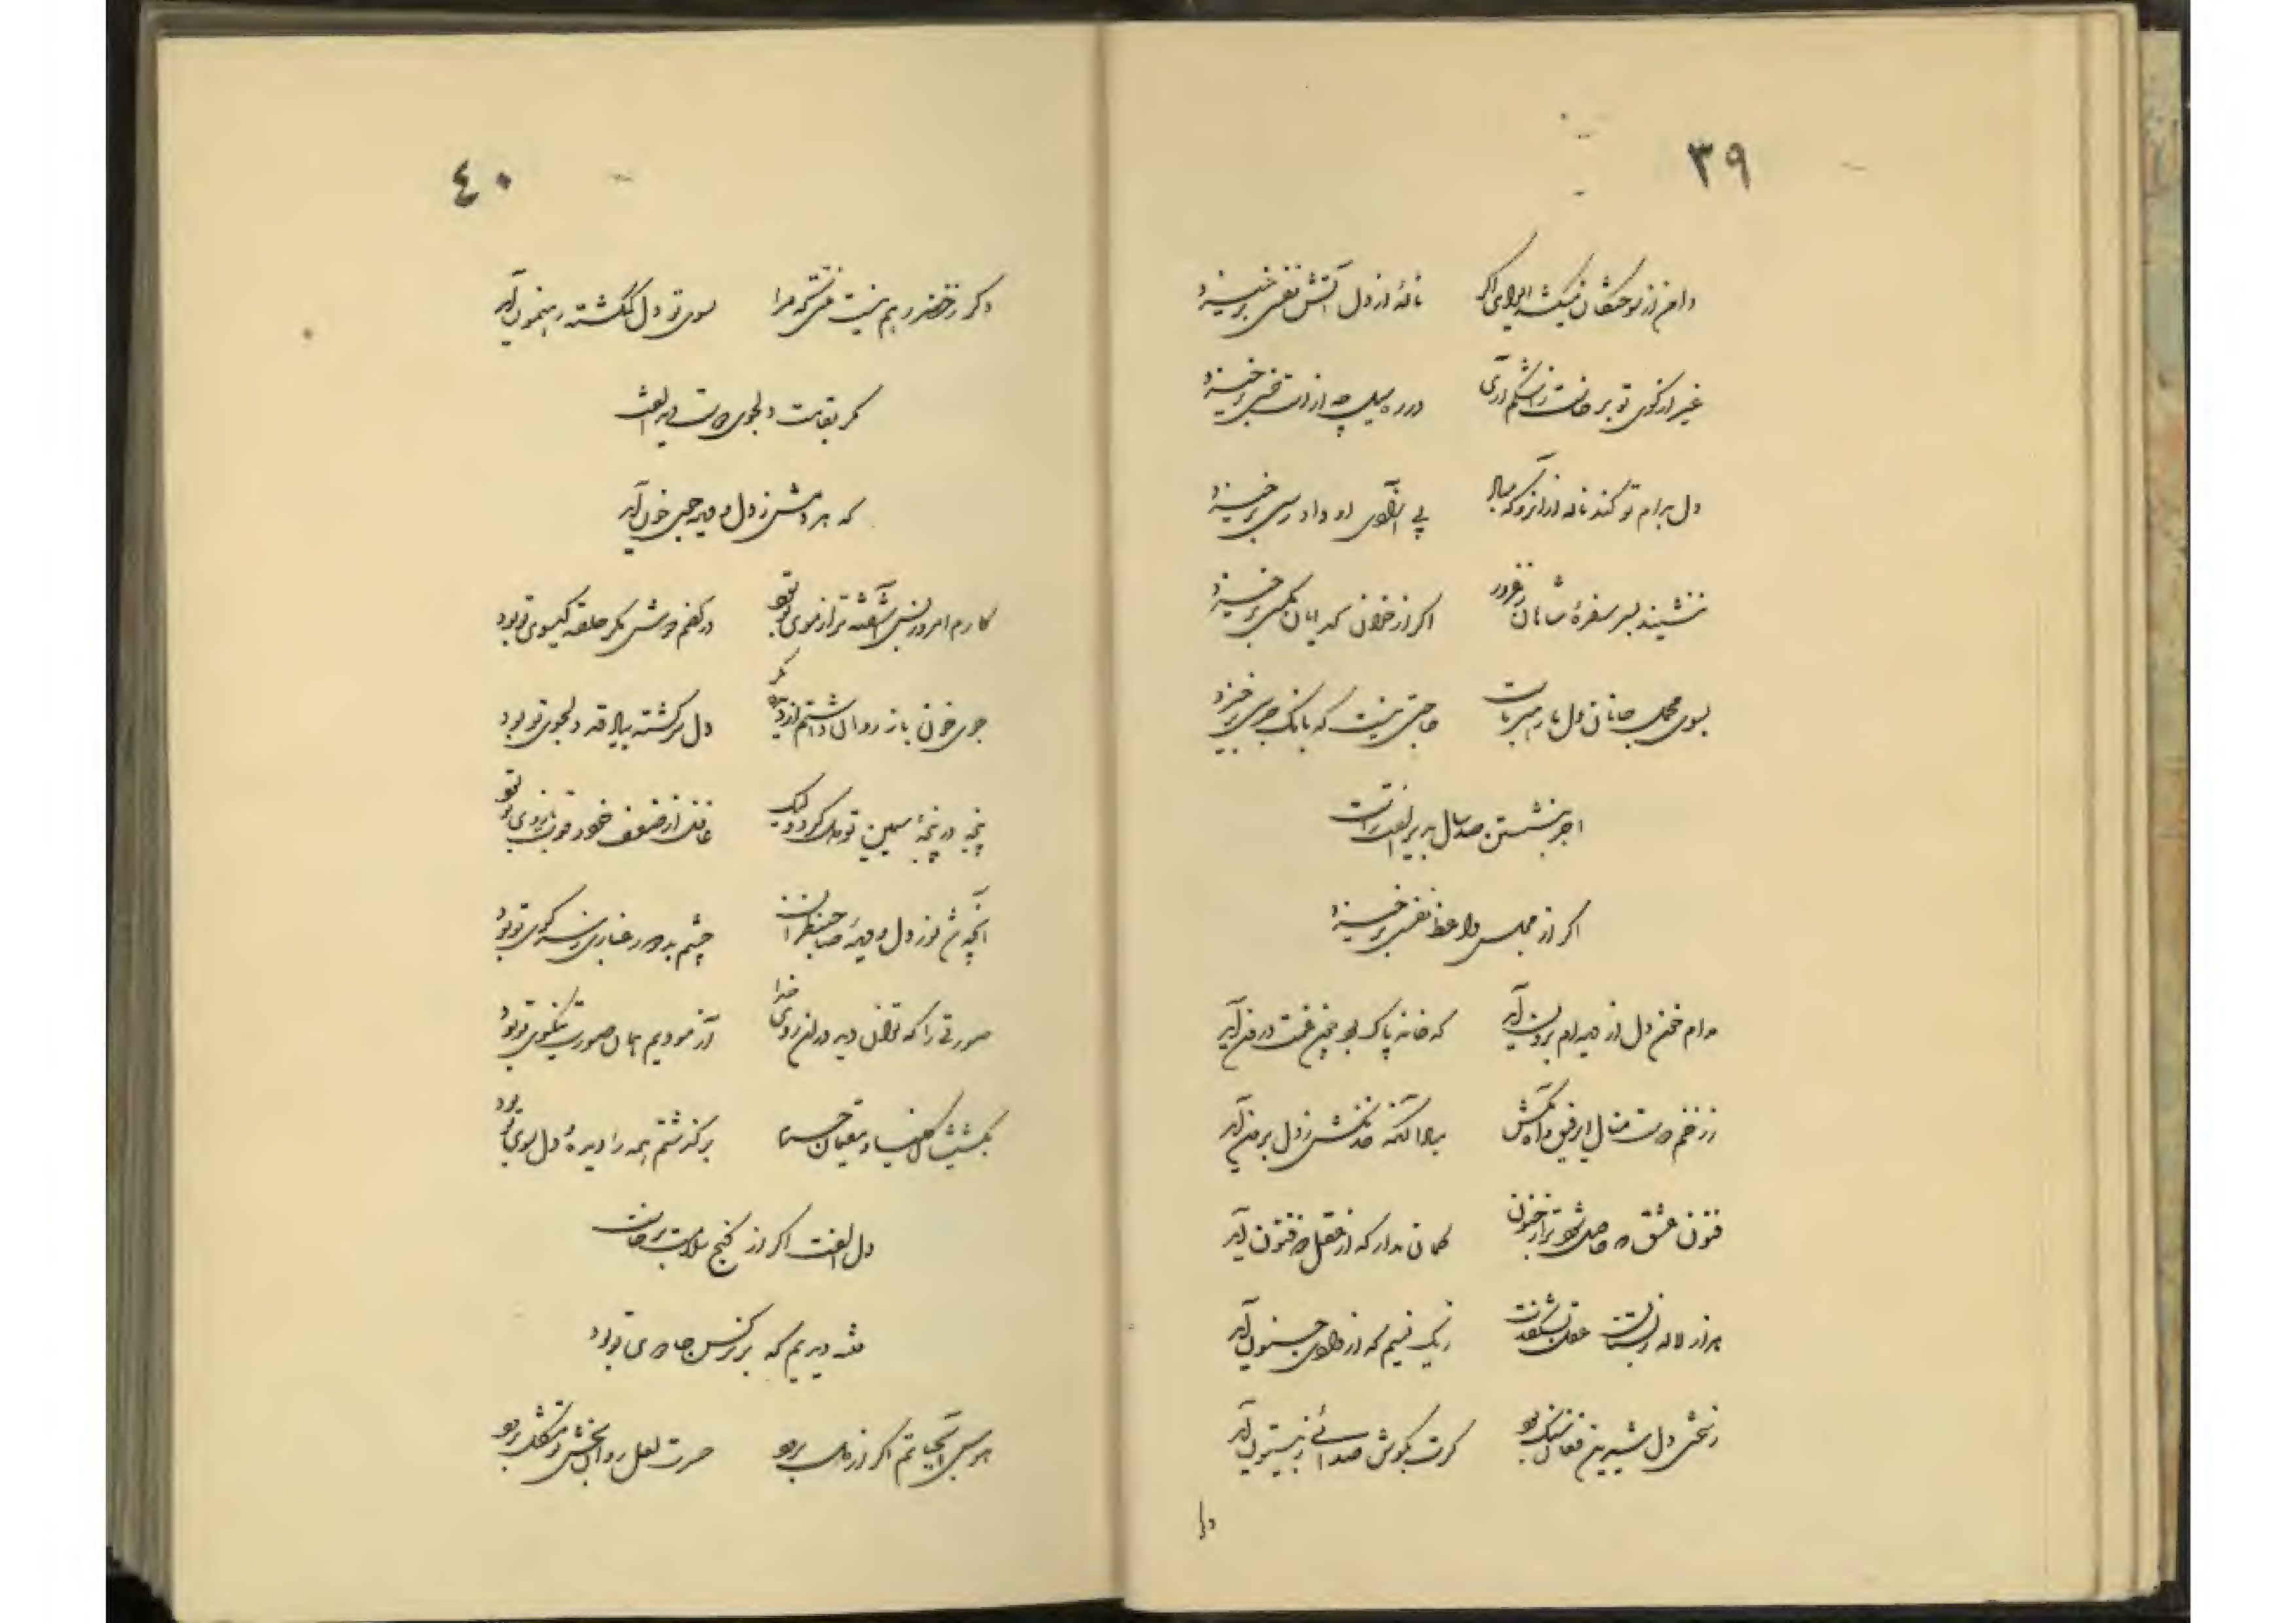 ٣٩
دامن از سوختگان میکشد ایوای اگر نالهٔ از دل آتش نفسی برخیزد
غیر از کوی تو برخاست ز اشکم آری در ره سیل چه از دست خسی برخیزد
دل بدام تو کند ناله از آنرو که مباد پی آزادی او دادرسی برخیزد
ننشیند بسر سفرهٔ شاهان ز غرور اگر از خوان گدایان مگسی برخیزد
بسوی محمل جانان دل ما رهبر ماست حاجتی نیست که بانگ جرسی برخیزد
اجر بنشستن صد سال بدیر الفت راست
اگر از مجلس واعظ نفسی برخیزد
مدام خون دل از دیده‌ام برون آید که خانه پاک بود چون غمت درون آید
ز زخم دوست منال ای رفیق و آه مکش مبادا آنکه خدنگش ز دل برون آید
فنون عشق چه حاصل شود ترا ز جنون گمان مدار که از عقل ذوفنون آید
هزار لاله ز بستان عقل نشکفدت ز یک نسیم که از وادی جنون آید
ز سختی دل شیرین فغان سنگ بود گرت بگوش صدائی ز بیستون آید
دل
٤٠
دگر ز خضر رهم نیست منتی که مرا بسوی تو دل گمگشته رهنمون آید
مگر بقامت دلجوی دوست دید الفت
که هر دمش ز دل و دیده جوی خون آید
کارم امروز بس آشفته تر از موی تو بود در کفم دوش مگر حلقه گیسوی تو بود
جوی خون باز روان داشتم از دیده مگر دل سرگشته بیاد قد دلجوی تو بود
پنجه در پنجهٔ سیمین تو دل کرد ولیک غافل از ضعف خود و قوت بازوی تو بود
آنچه شد نور دل و دیدهٔ صاحبنظران چشم بد دور غباری ز سر کوی تو بود
صورتی را که توان دید در آن روی خدا آزمودیم همان صورت نیکوی تو بود
بگذشت کلیسا و مقیمان حرم برگذشتم همه را دیدهٔ دل سوی تو بود
دل الفت اگر از کنج سلامت برخاست
فتنه دیدیم که بر نرگس جادوی تو بود
هوس آب حیاتم اگر از دل برود حسرت لعل روانبخش تو مشکل برود